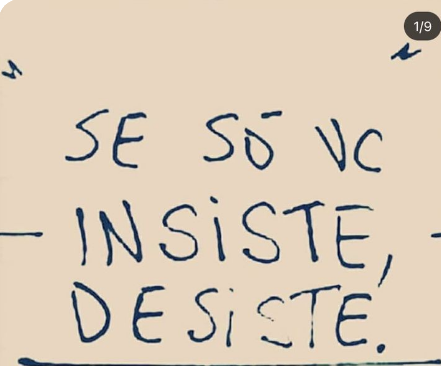 1/9
SE SÓ VC
INSiSTE,
DESiSTE.